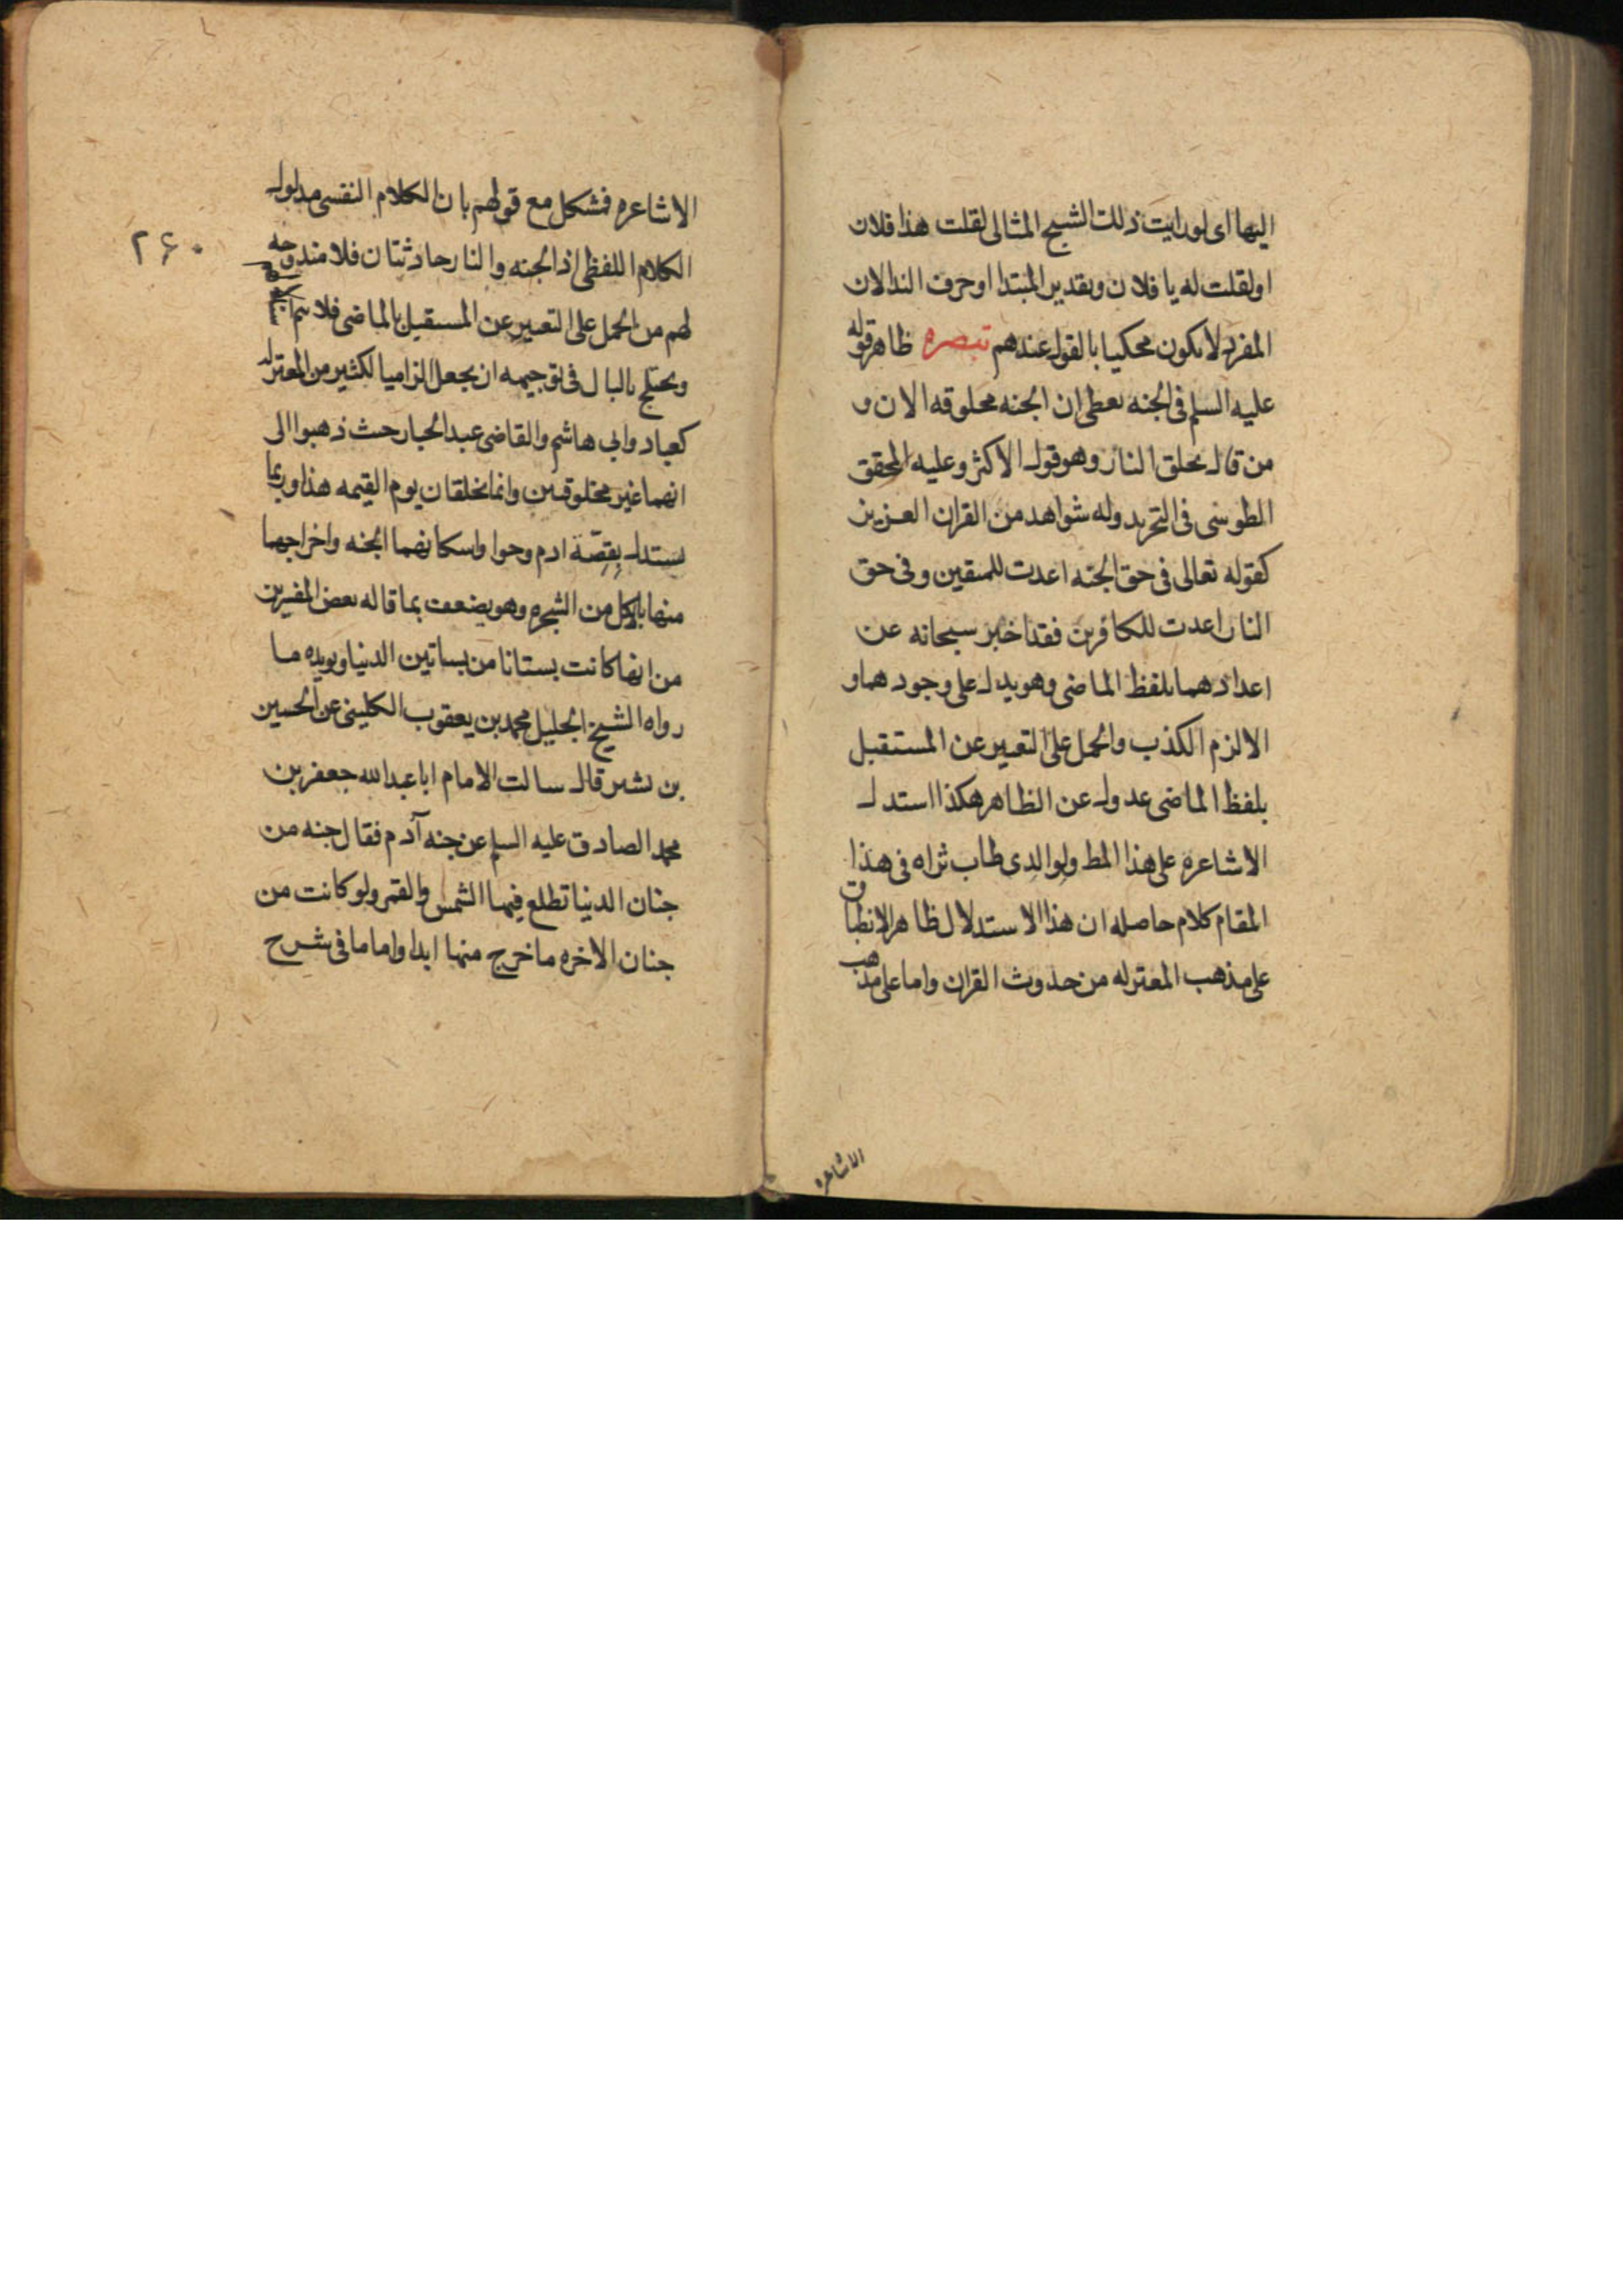 اليها اى لو رايت ذلك الشبح المثالى لقلت هذا فلان
او لقلت له يا فلان وبقدير المبتدا او حرف الندا لان
المفرد لا يكون محكيا بالقول عندهم تبصره ظاهر قوله
عليه السلم فى الجنه يعطى ان الجنه مخلوقه الان و
من قال بخلق النار وهو قول الاكثر وعليه المحقق
الطوسى فى التجريد وله شواهد من القران العزيز
كقوله تعالى فى حق الجنه اعدت للمتقين وفى حق
النار اعدت للكافرين فقد اخبر سبحانه عن
اعدادهما بلفظ الماضى وهو يدل على وجودهما و
الا لزم الكذب والحمل على التعبير عن المستقبل
بلفظ الماضى عدول عن الظاهر هكذا استدل
الاشاعره على هذا المط ولوالدى طاب ثراه فى هذا
المقام كلام حاصله ان هذا الاستدلال ظاهر الانطباق
على مذهب المعتزله من حدوث القران واما على مذهب
الاشاعره
٢۶٠
الاشاعره فمشكل مع قولهم بان الكلام النفسى مدلول
الكلام اللفظى اذ الجنه والنار حادثتان فلا مندوحه
لهم من الحمل على التعبير عن المستقبل بالماضى فلا يتم
ويختلج بالبال فى توجيهه ان يجعل الزاميا لكثير من المعتزله
كعباد وابى هاشم والقاضى عبد الجبار حيث ذهبوا الى
انهما غير مخلوقتين وانما تخلقان يوم القيمه هذا وربما
يستدل بقصة ادم وحوا واسكانهما الجنه واخراجهما
منها بالاكل من الشجره وهو يضعف بما قاله بعض المفسرين
من انها كانت بستانا من بساتين الدنيا ويويده ما
رواه الشيخ الجليل محمد بن يعقوب الكلينى عن الحسين
بن بشير قال سالت الامام ابا عبدالله جعفر بن
محمد الصادق عليه السلم عن جنه آدم فقال جنه من
جنان الدنيا تطلع فيها الشمس والقمر ولو كانت من
جنان الاخره ما خرج منها ابدا واما ما فى شرح